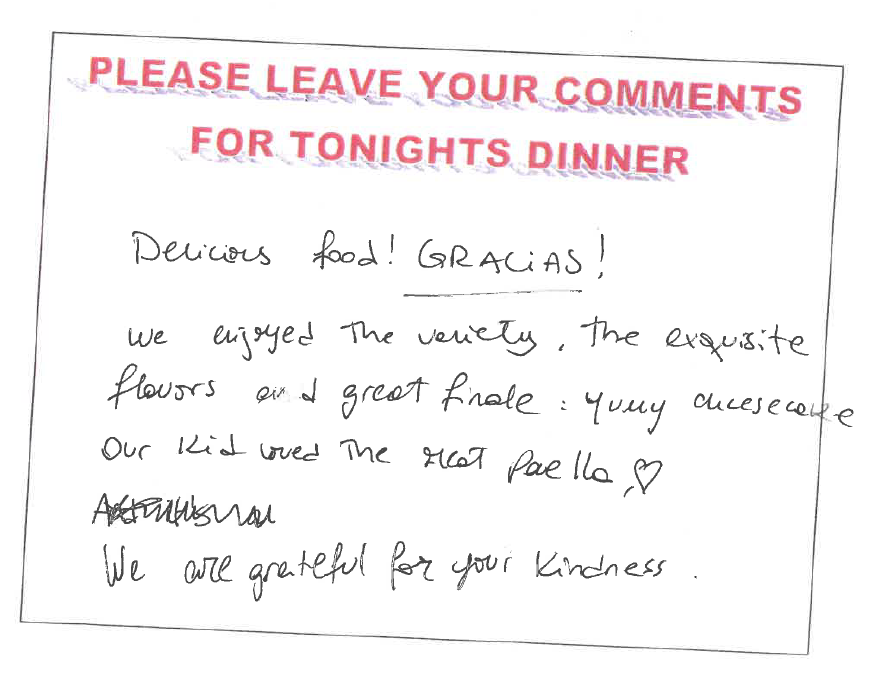 PLEASE LEAVE YOUR COMMENTS
FOR TONIGHTS DINNER
Delicious food! GRACiAS!
we enjoyed The variety, The exquisite
flavors and great finale : yuuy cheesecake
Our Kid loved The Meat Paella ♡
We are grateful for your Kindness.